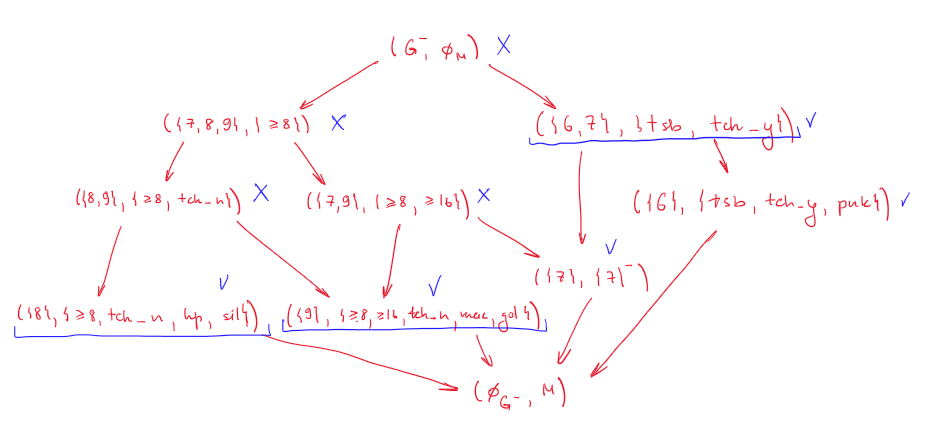 (G⁻, ϕ_M) X
({7,8,9}, {≥8}) X
({6,7}, {tsb, tch_y}) ✓
({8,9}, {≥8, tch_n}) X
({7,9}, {≥8, ≥16}) X
({6}, {tsb, tch_y, pnk}) ✓
({7}, {7}⁻) ✓
({8}, {≥8, tch_n, hp, sil}) ✓
({9}, {≥8, ≥16, tch_n, mac, gol}) ✓
(ϕ_G⁻, M)